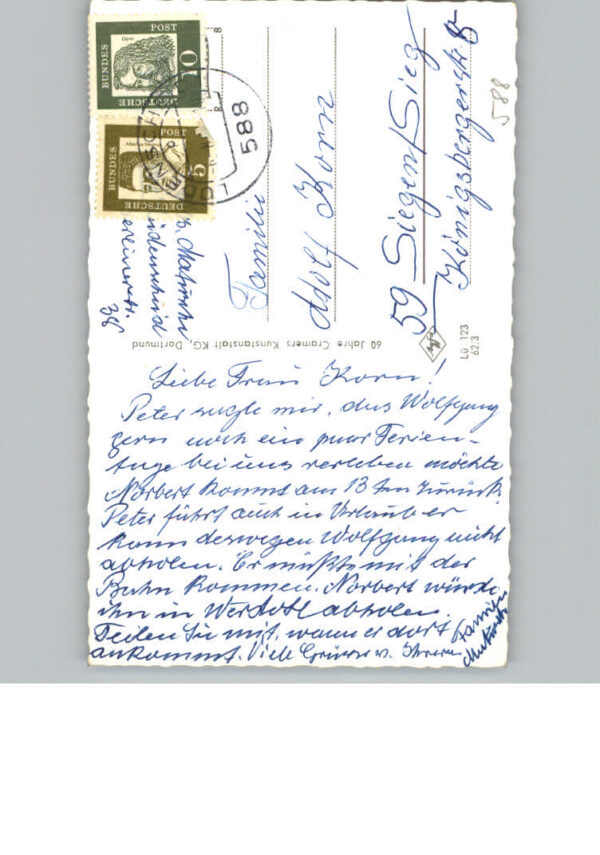 Liebe Frau Korn!
Peter sagte mir, das Wolfgang
gern noch ein paar Ferien-
tage bei uns verleben möchte
Norbert kommt am 13ten zurück.
Peter fährt auch in Urlaub er
kann deswegen Wolfgang nicht
abholen. Er müßte mit der
Bahn kommen. Norbert würde
ihn in Werdohl abholen.
Teilen Sie mit, wann er dort
ankommt. Viele Grüsse v. Ihrer
Familie
60 Jahre Cramers Kunstanstalt KG, Dortmund
Lü 123
62,3
Familie
Adolf Korn
59 Siegen/Sieg
Königsbergerstr. 8
588
38
DEUTSCHE
BUNDES
POST
10
DEUTSCHE
BUNDES
POST
5
588